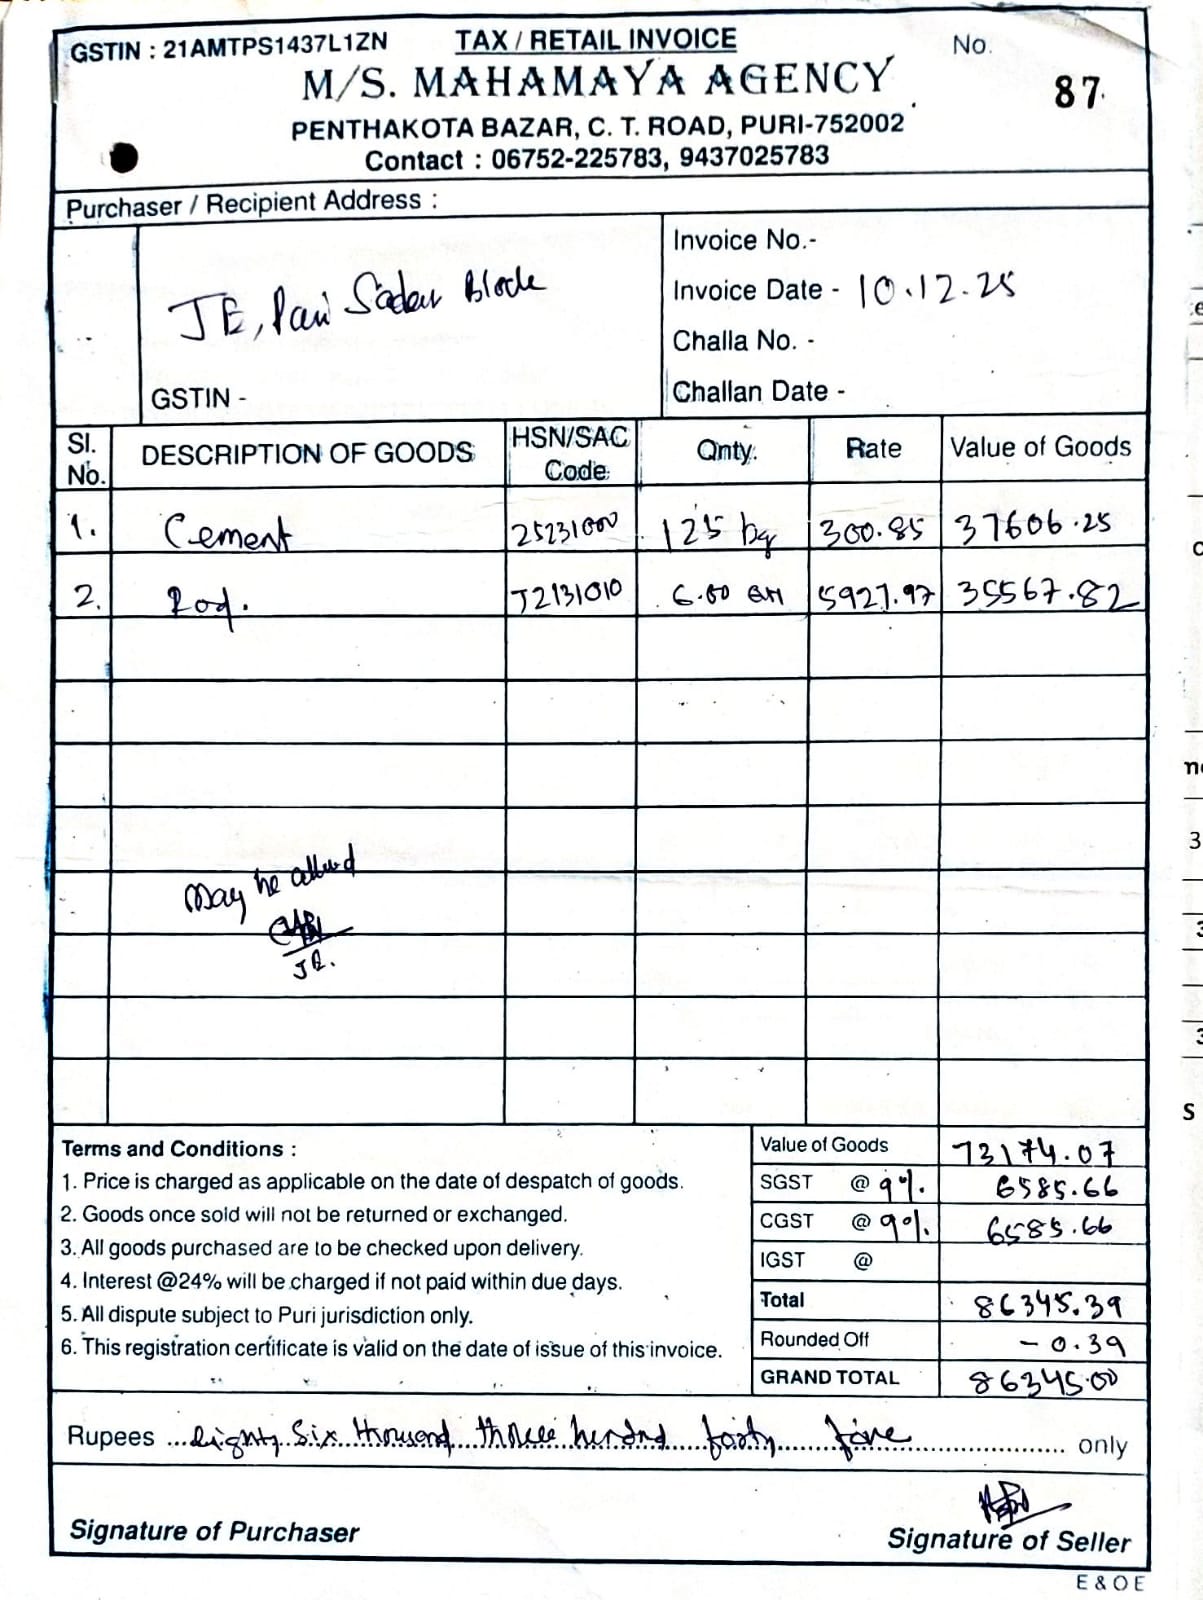 GSTIN : 21AMTPS1437L1ZN TAX / RETAIL INVOICE No.
M/S. MAHAMAYA AGENCY 87
PENTHAKOTA BAZAR, C. T. ROAD, PURI-752002
Contact : 06752-225783, 9437025783
Purchaser / Recipient Address :
JE, Puri Sadar Block
GSTIN -
Invoice No.-
Invoice Date - 10.12.25
Challa No. -
Challan Date -
Sl. No. DESCRIPTION OF GOODS HSN/SAC Code Qnty. Rate Value of Goods
1. Cement 25231000 125 bg 300.85 37606.25
2. Rod. 72131010 6.00 5927.97 35567.82
May be allowed
JE.
Terms and Conditions :
1. Price is charged as applicable on the date of despatch of goods.
2. Goods once sold will not be returned or exchanged.
3. All goods purchased are to be checked upon delivery.
4. Interest @24% will be charged if not paid within due days.
5. All dispute subject to Puri jurisdiction only.
6. This registration certificate is valid on the date of issue of this invoice.
Value of Goods 73174.07
SGST @ 9%. 6585.66
CGST @ 9%. 6585.66
IGST @
Total 86345.39
Rounded Off - 0.39
GRAND TOTAL 86345.00
Rupees ... Eighty Six thousand three hundred forty five ... only
Signature of Purchaser
Signature of Seller
E & O E